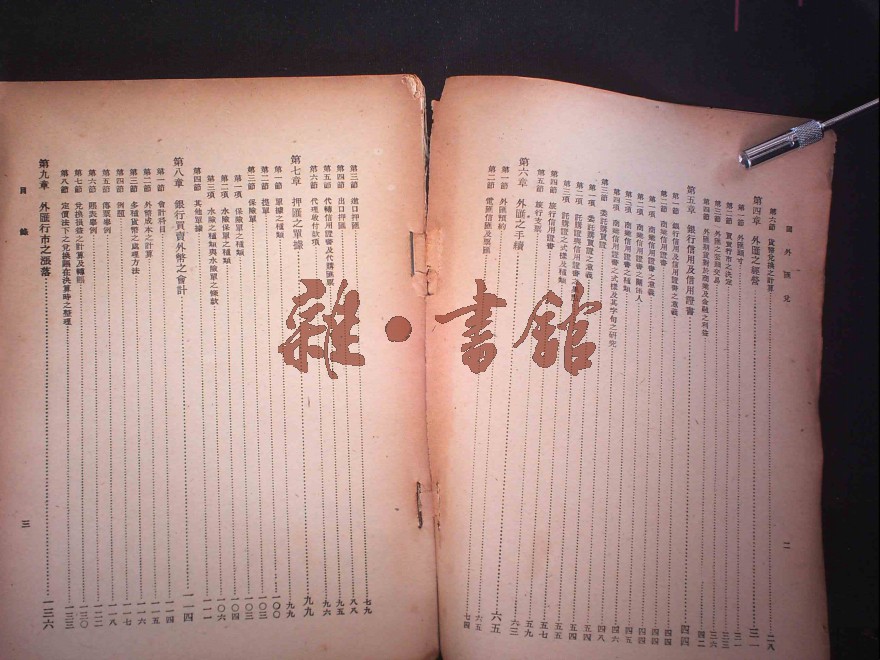 國外匯兌
二
第六節 貨幣兌換之計算 二八
第四章 外匯之經營 三一
第一節 外匯頭寸 三一
第二節 買賣行市之決定 三三
第三節 外匯之當期交易 三六
第四節 外匯期貨對於商業及金融之利益 四二
第五章 銀行信用及信用證書 四四
第一節 銀行信用及信用證書之意義 四四
第二節 商業信用證書
第一項 商業信用證書之意義
第二項 商業信用證書之關係人 四五
第三項 商業信用證書之種類
第四項 商業信用證書之式樣及其字句之研究 四八
第三節 委託購買證
第一項 委託購買證之意義
第二項 託購證與信用證書之
第三項 託購證之式樣及種類 五五
第四節 旅行信用證書 五七
第五節 旅行支票
第六章 外匯之手續 六五
第一節 外匯預約 六五
第二節 電匯信匯及票匯 七四
第三節 進口押匯 七九
第四節 出口押匯 八八
第五節 代轉信用證書及代購匯票 九五
第六節 代理收付款項 九六
第七章 押匯之單據 九九
第一節 單據之種類 九九
第二節 提單 一〇〇
第三節 保險單 一〇三
第一項 保險單之種類 一〇三
第二項 水險保單之種類 一〇四
第三項 水險之種類與水險單之條款 一〇六
第四節 其他單據 一一一
第八章 銀行買賣外幣之會計 一一四
第一節 會計科目 一一四
第二節 外幣成本之計算 一一五
第三節 多種貨幣之處理方法 一一六
第四節 例題 一一七
第五節 傳票舉例 一一八
第六節 賬表舉例 一二二
第七節 兌換損益之計算及轉賬 一三〇
第八節 定價法下之兌換賬在決算時之整理 一三三
第九章 外匯行市之漲落 一三六
目錄
三
雜·書館